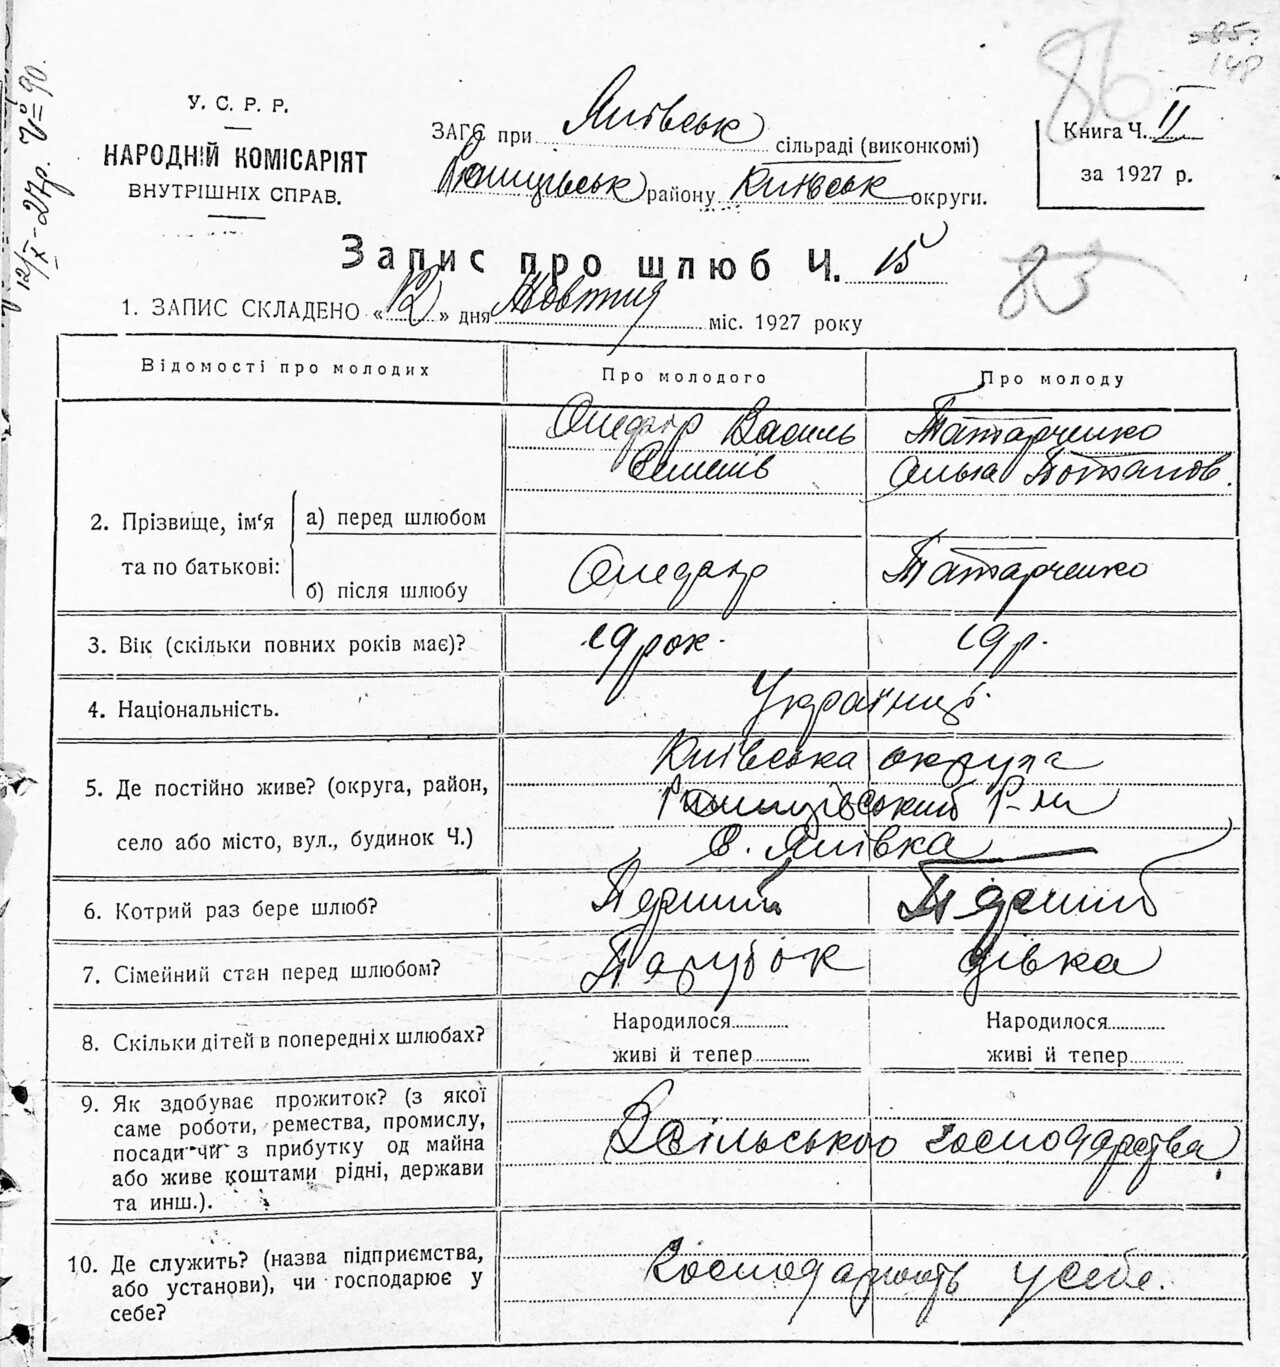 86
85
148
12/X-27р. № 90.
У. С. Р. Р.
НАРОДНІЙ КОМІСАРІЯТ
ВНУТРІШНІХ СПРАВ.
ЗАГС при Яхівськ сільраді (виконкомі)
району Київськ округи.
Книга Ч. II
за 1927 р.
Запис про шлюб Ч. 15
83
1. ЗАПИС СКЛАДЕНО «12» дня Жовтня міс. 1927 року
Відомості про молодих
Про молодого
Про молоду
2. Прізвище, ім‘я та по батькові:
а) перед шлюбом
Василь
Семенів
Татарченко
Потапов.
б) після шлюбу
Татарченко
3. Вік (скільки повних років має)?
19 рок.
19 р.
4. Національність.
Українці
5. Де постійно живе? (округа, район,
село або місто, вул., будинок Ч.)
Київська округа
Р-ну
с.
6. Котрий раз бере шлюб?
Перший
Перший
7. Сімейний стан перед шлюбом?
Парубок
дівка
8. Скільки дітей в попередніх шлюбах?
Народилося
живі й тепер
Народилося
живі й тепер
9. Як здобуває прожиток? (з якої
саме роботи, ремества, промислу,
посади чи з прибутку од майна
або живе коштами рідні, держави
та инш.).
З сільського господарства
10. Де служить? (назва підприємства,
або установи), чи господарює у
себе?
Господарюють у себе.